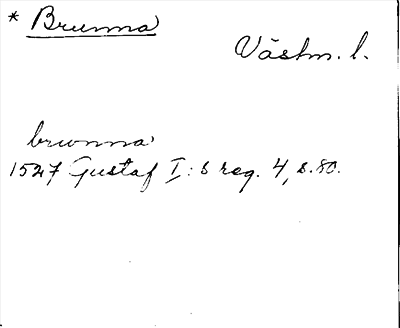 * Brunna
Västm. l.
brunna
1527 Gustaf I:s reg. 4, s. 80.